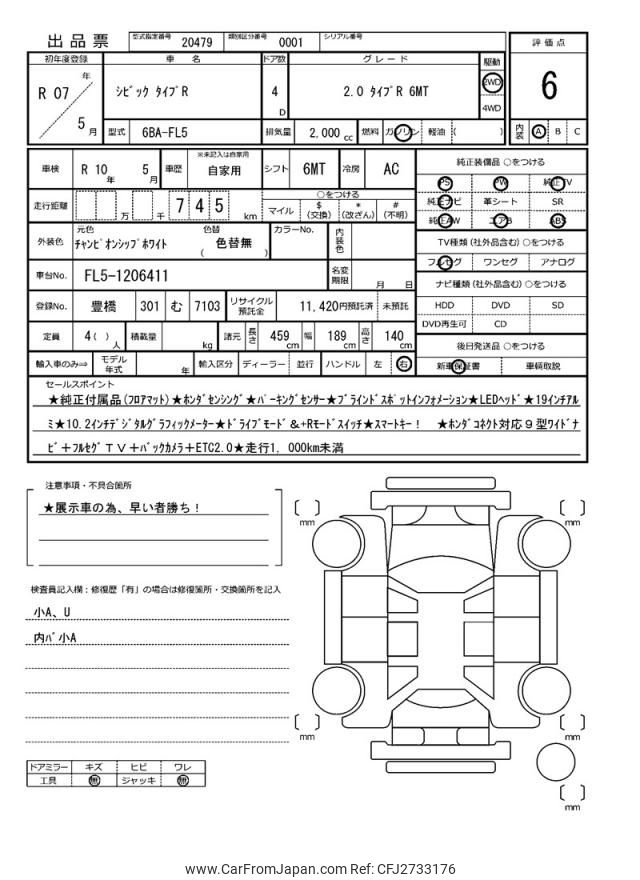 出品票 型式指定番号 20479 類別区分番号 0001 シリアル番号
初年度登録 車名 ドア数 グレード 駆動 評価点
R 07 年 5 月 シビック タイプR 4 D 2.0 タイプR 6MT 2WD 4WD 6
型式 6BA-FL5 排気量 2,000 cc 燃料 ガソリン 軽油 ( ) 内装 A B C
車検 R 10 年 5 月 車歴 ※未記入は自家用 自家用 シフト 6MT 冷房 AC 純正装備品 ○をつける
PS PW 純正TV
走行距離 万 千 7 4 5 km ○をつける マイル $ (交換) * (改ざん) # (不明) 純正ナビ 革シート SR
純正AW エアB ABS
外装色 元色 チャンピオンシップホワイト 色替 ( 色替無 ) カラーNo. 内装色 TV種類(社外品含む)○をつける
フルセグ ワンセグ アナログ
車台No. FL5-1206411 名変期限 月 日 ナビ種類(社外品含む)○をつける
登録No. 豊橋 301 む 7103 リサイクル預託金 11,420円預託済 未預託 HDD DVD SD
DVD再生可 CD
定員 4( ) 人 積載量 kg 諸元 長さ 459 cm 幅 189 cm 高さ 140 cm 後日発送品 ○をつける
輸入車のみ⇒ モデル年式 年 輸入区分 ディーラー 並行 ハンドル 左 右 新車保証書 車輌取説
セールスポイント
★純正付属品(フロアマット)★ホンダセンシング★パーキングセンサー★ブラインドスポットインフォメーション★LEDヘッド★19インチアル
ミ★10.2インチデジタルグラフィックメーター★ドライブモード&+Rモードスイッチ★スマートキー! ★ホンダコネクト対応9型ワイドナ
ビ+フルセグTV+バックカメラ+ETC2.0★走行1,000km未満
注意事項・不具合箇所
★展示車の為、早い者勝ち!
mm
mm
検査員記入欄:修復歴「有」の場合は修復箇所・交換箇所を記入
小A、U
内バ小A
mm
mm
ドアミラー キズ ヒビ ワレ
工具 無 ジャッキ 無
mm
www.CarFromJapan.com Ref: CFJ2733176